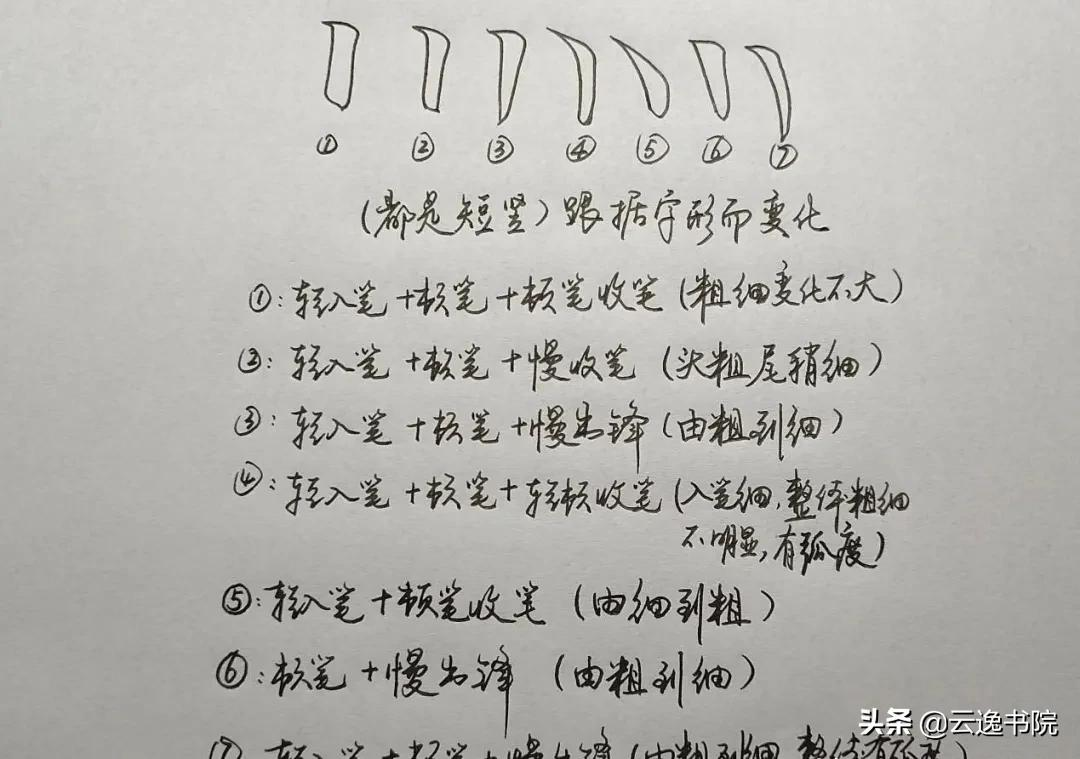 ① ② ③ ④ ⑤ ⑥ ⑦
(都是短竖)跟据字形而变化
①:轻入笔+顿笔+顿笔收笔(粗细变化不大)
②:轻入笔+顿笔+慢收笔(头粗尾稍细)
③:轻入笔+顿笔+慢出锋(由粗到细)
④:轻入笔+顿笔+轻顿收笔(入笔细,整体粗细
不明显,有弧度)
⑤:轻入笔+顿笔收笔(由细到粗)
⑥:顿笔+慢出锋(由粗到细)
⑦:轻入笔+顿笔+慢出锋(由粗到细,整体有弧度)
头条@云逸书院